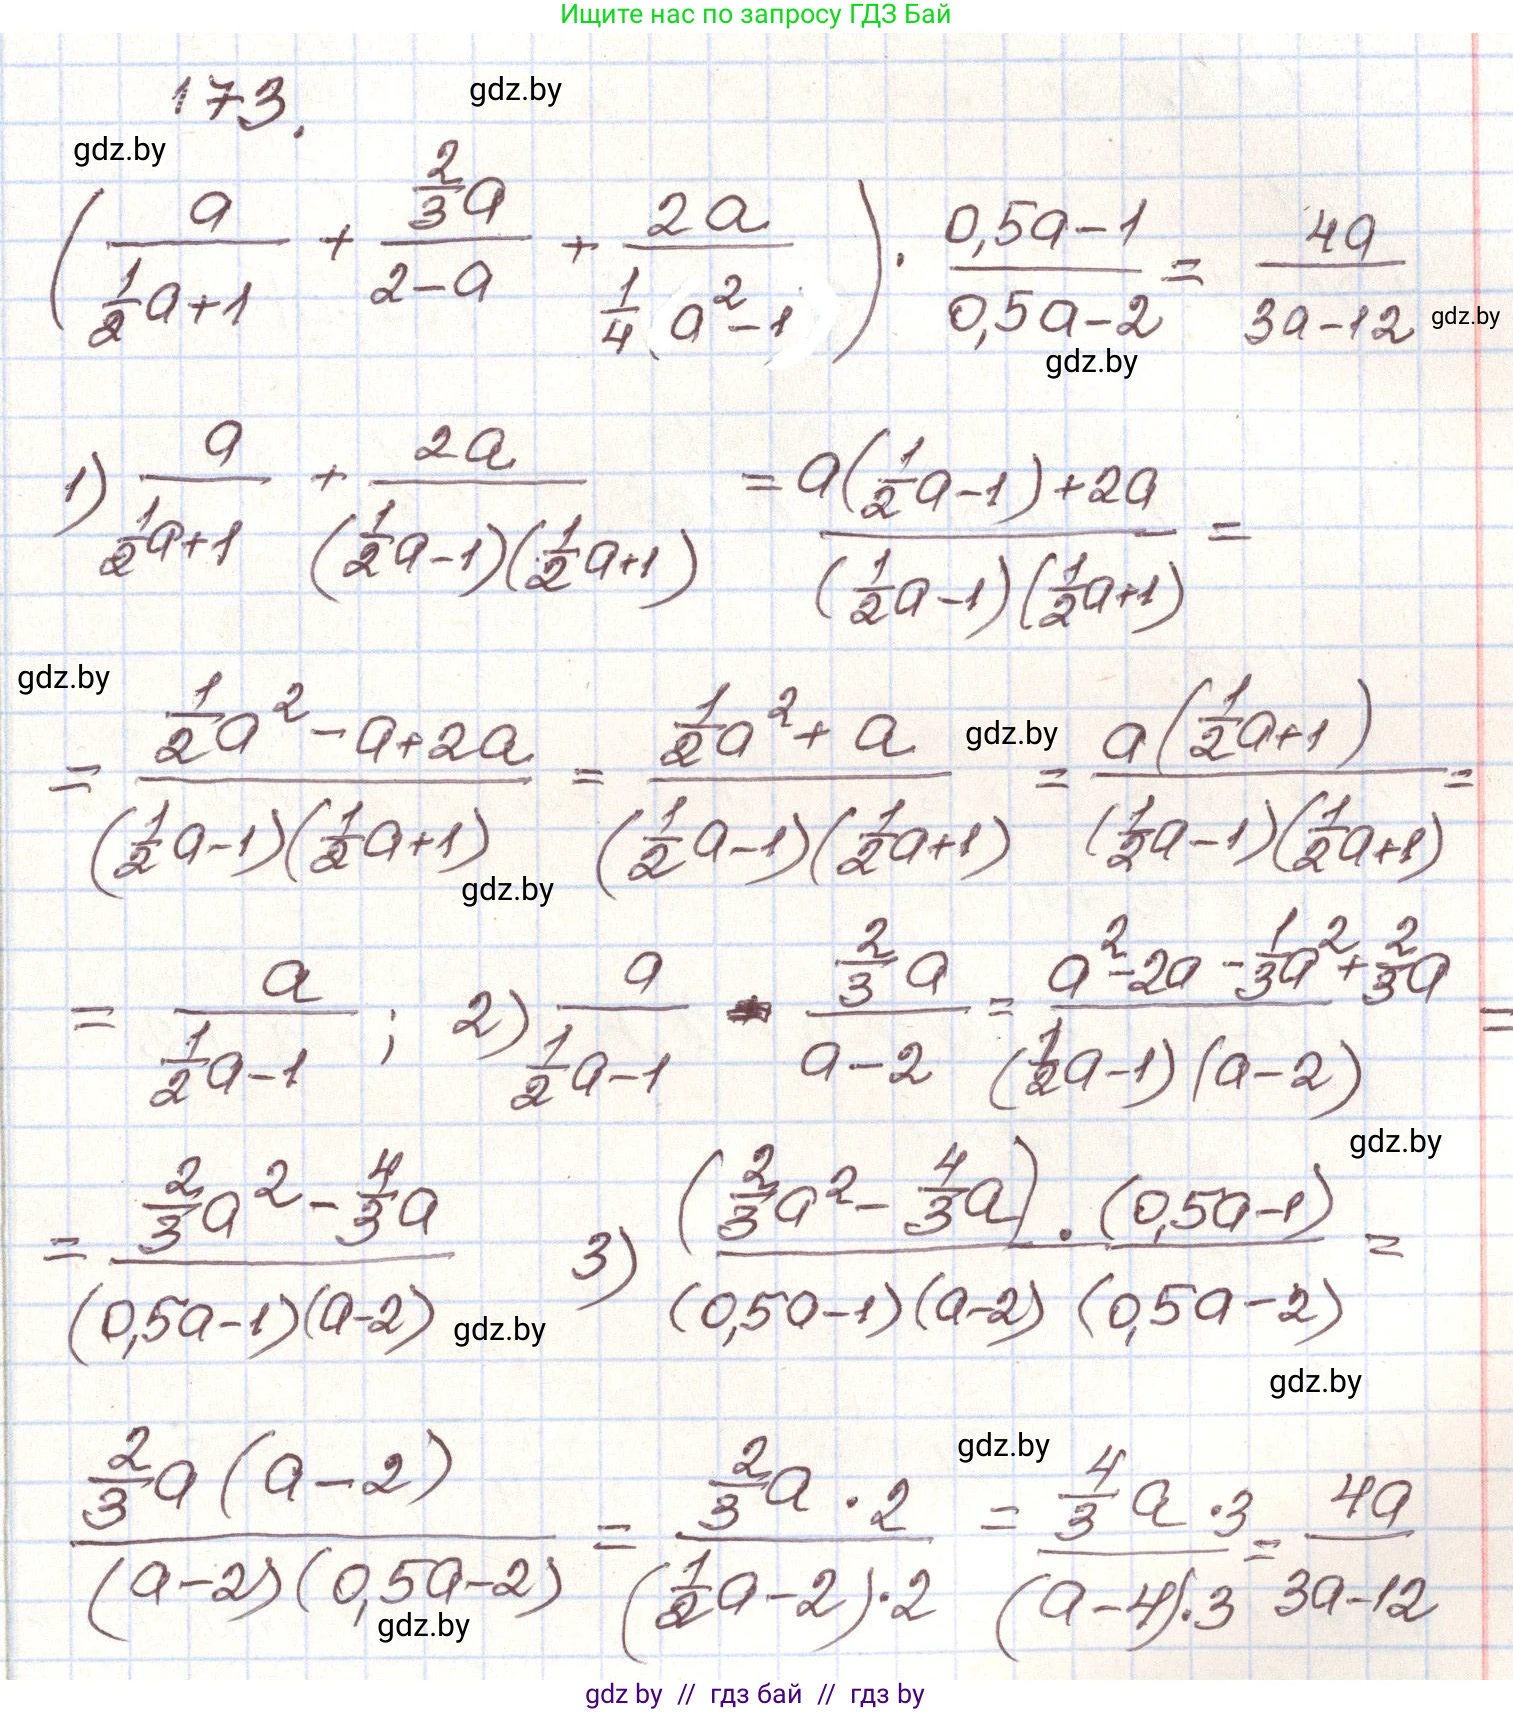 Ищите нас по запросу ГДЗ Бай
173.
gdz.by
gdz.by
(a/(1/2a+1) + (2/3a)/(2-a) + 2a/(1/4a²-1)) · (0,5a-1)/(0,5a-2) = 4a/(3a-12)
gdz.by
gdz.by
1) a/(1/2a+1) + 2a/((1/2a-1)(1/2a+1)) = (a(1/2a-1)+2a)/((1/2a-1)(1/2a+1)) =
gdz.by
= (1/2a²-a+2a)/((1/2a-1)(1/2a+1)) = (1/2a²+a)/((1/2a-1)(1/2a+1)) = a(1/2a+1)/((1/2a-1)(1/2a+1)) =
gdz.by
gdz.by
= a/(1/2a-1); 2) a/(1/2a-1) - (2/3a)/(a-2) = (a²-2a-1/3a²+2/3a)/((1/2a-1)(a-2)) =
gdz.by
= (2/3a²-4/3a)/((0,5a-1)(a-2)) 3) ((2/3a²-4/3a)·(0,5a-1))/((0,5a-1)(a-2)(0,5a-2)) =
gdz.by
gdz.by
gdz.by
2/3a(a-2)/((a-2)(0,5a-2)) = (2/3a·2)/((1/2a-2)·2) = (4/3a·3)/((a-4)·3) = 4a/(3a-12)
gdz.by
gdz by // гдз бай // гдз by